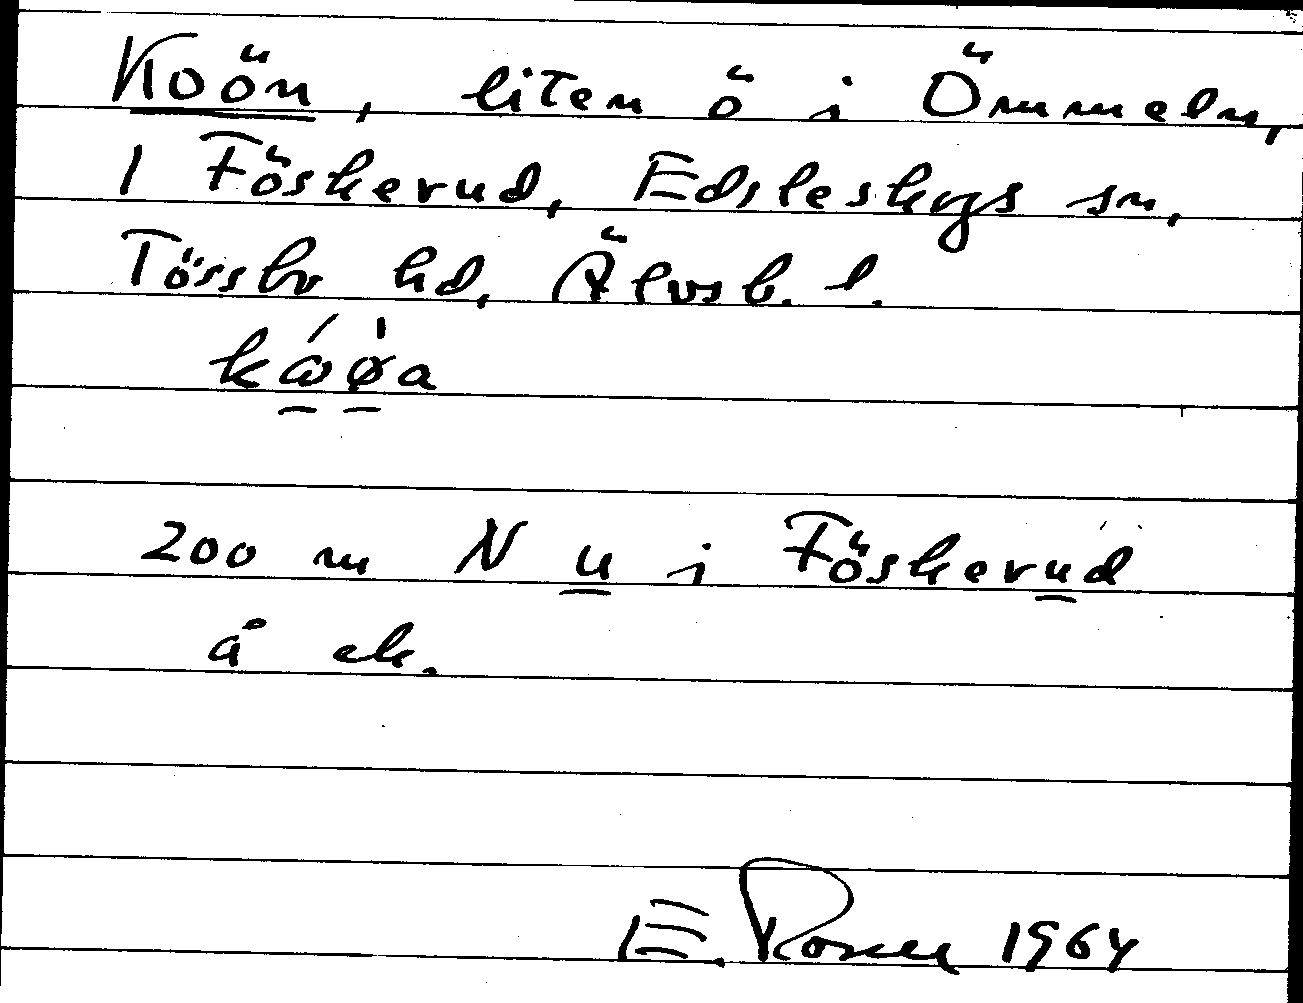 Koön, liten ö i Ömmeln,
1 Föskerud, Edsleskogs sn,
Tössbo hd, Älvsb. l.
200 m N u i Föskerud
å ek.
E. Rosell 1964